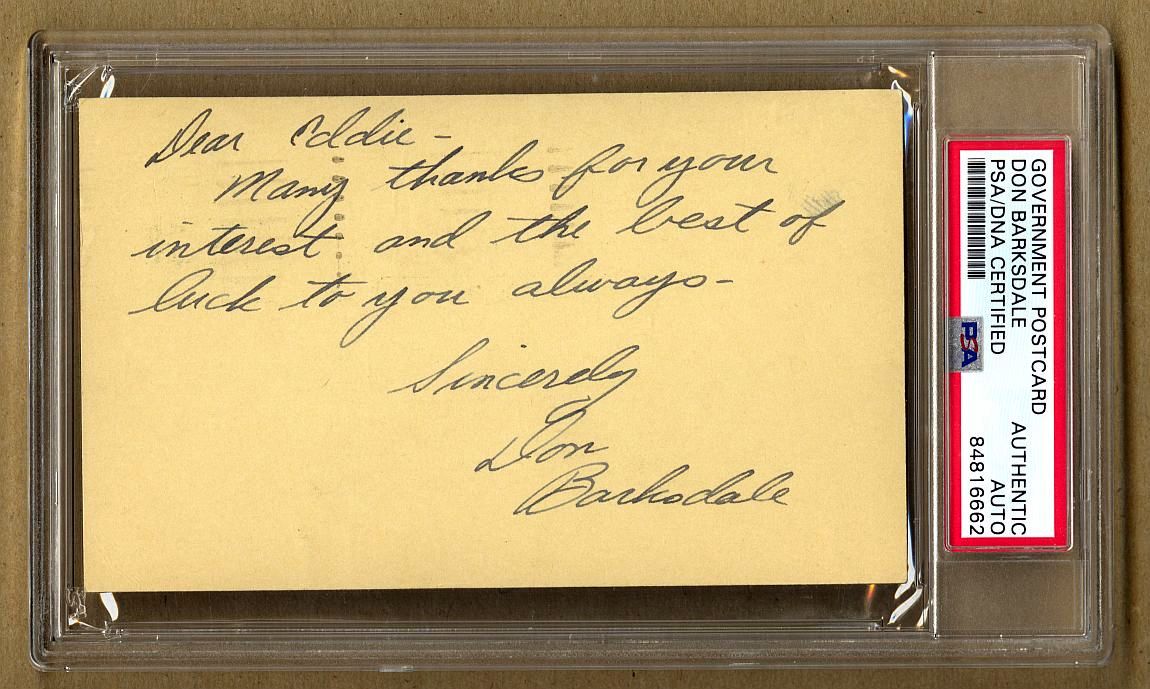 Dear Eddie -
Many thanks for your
interest and the best of
luck to you always -
Sincerely
Don
Barksdale
GOVERNMENT POSTCARD
DON BARKSDALE AUTHENTIC
PSA/DNA CERTIFIED AUTO
84816662
PSA